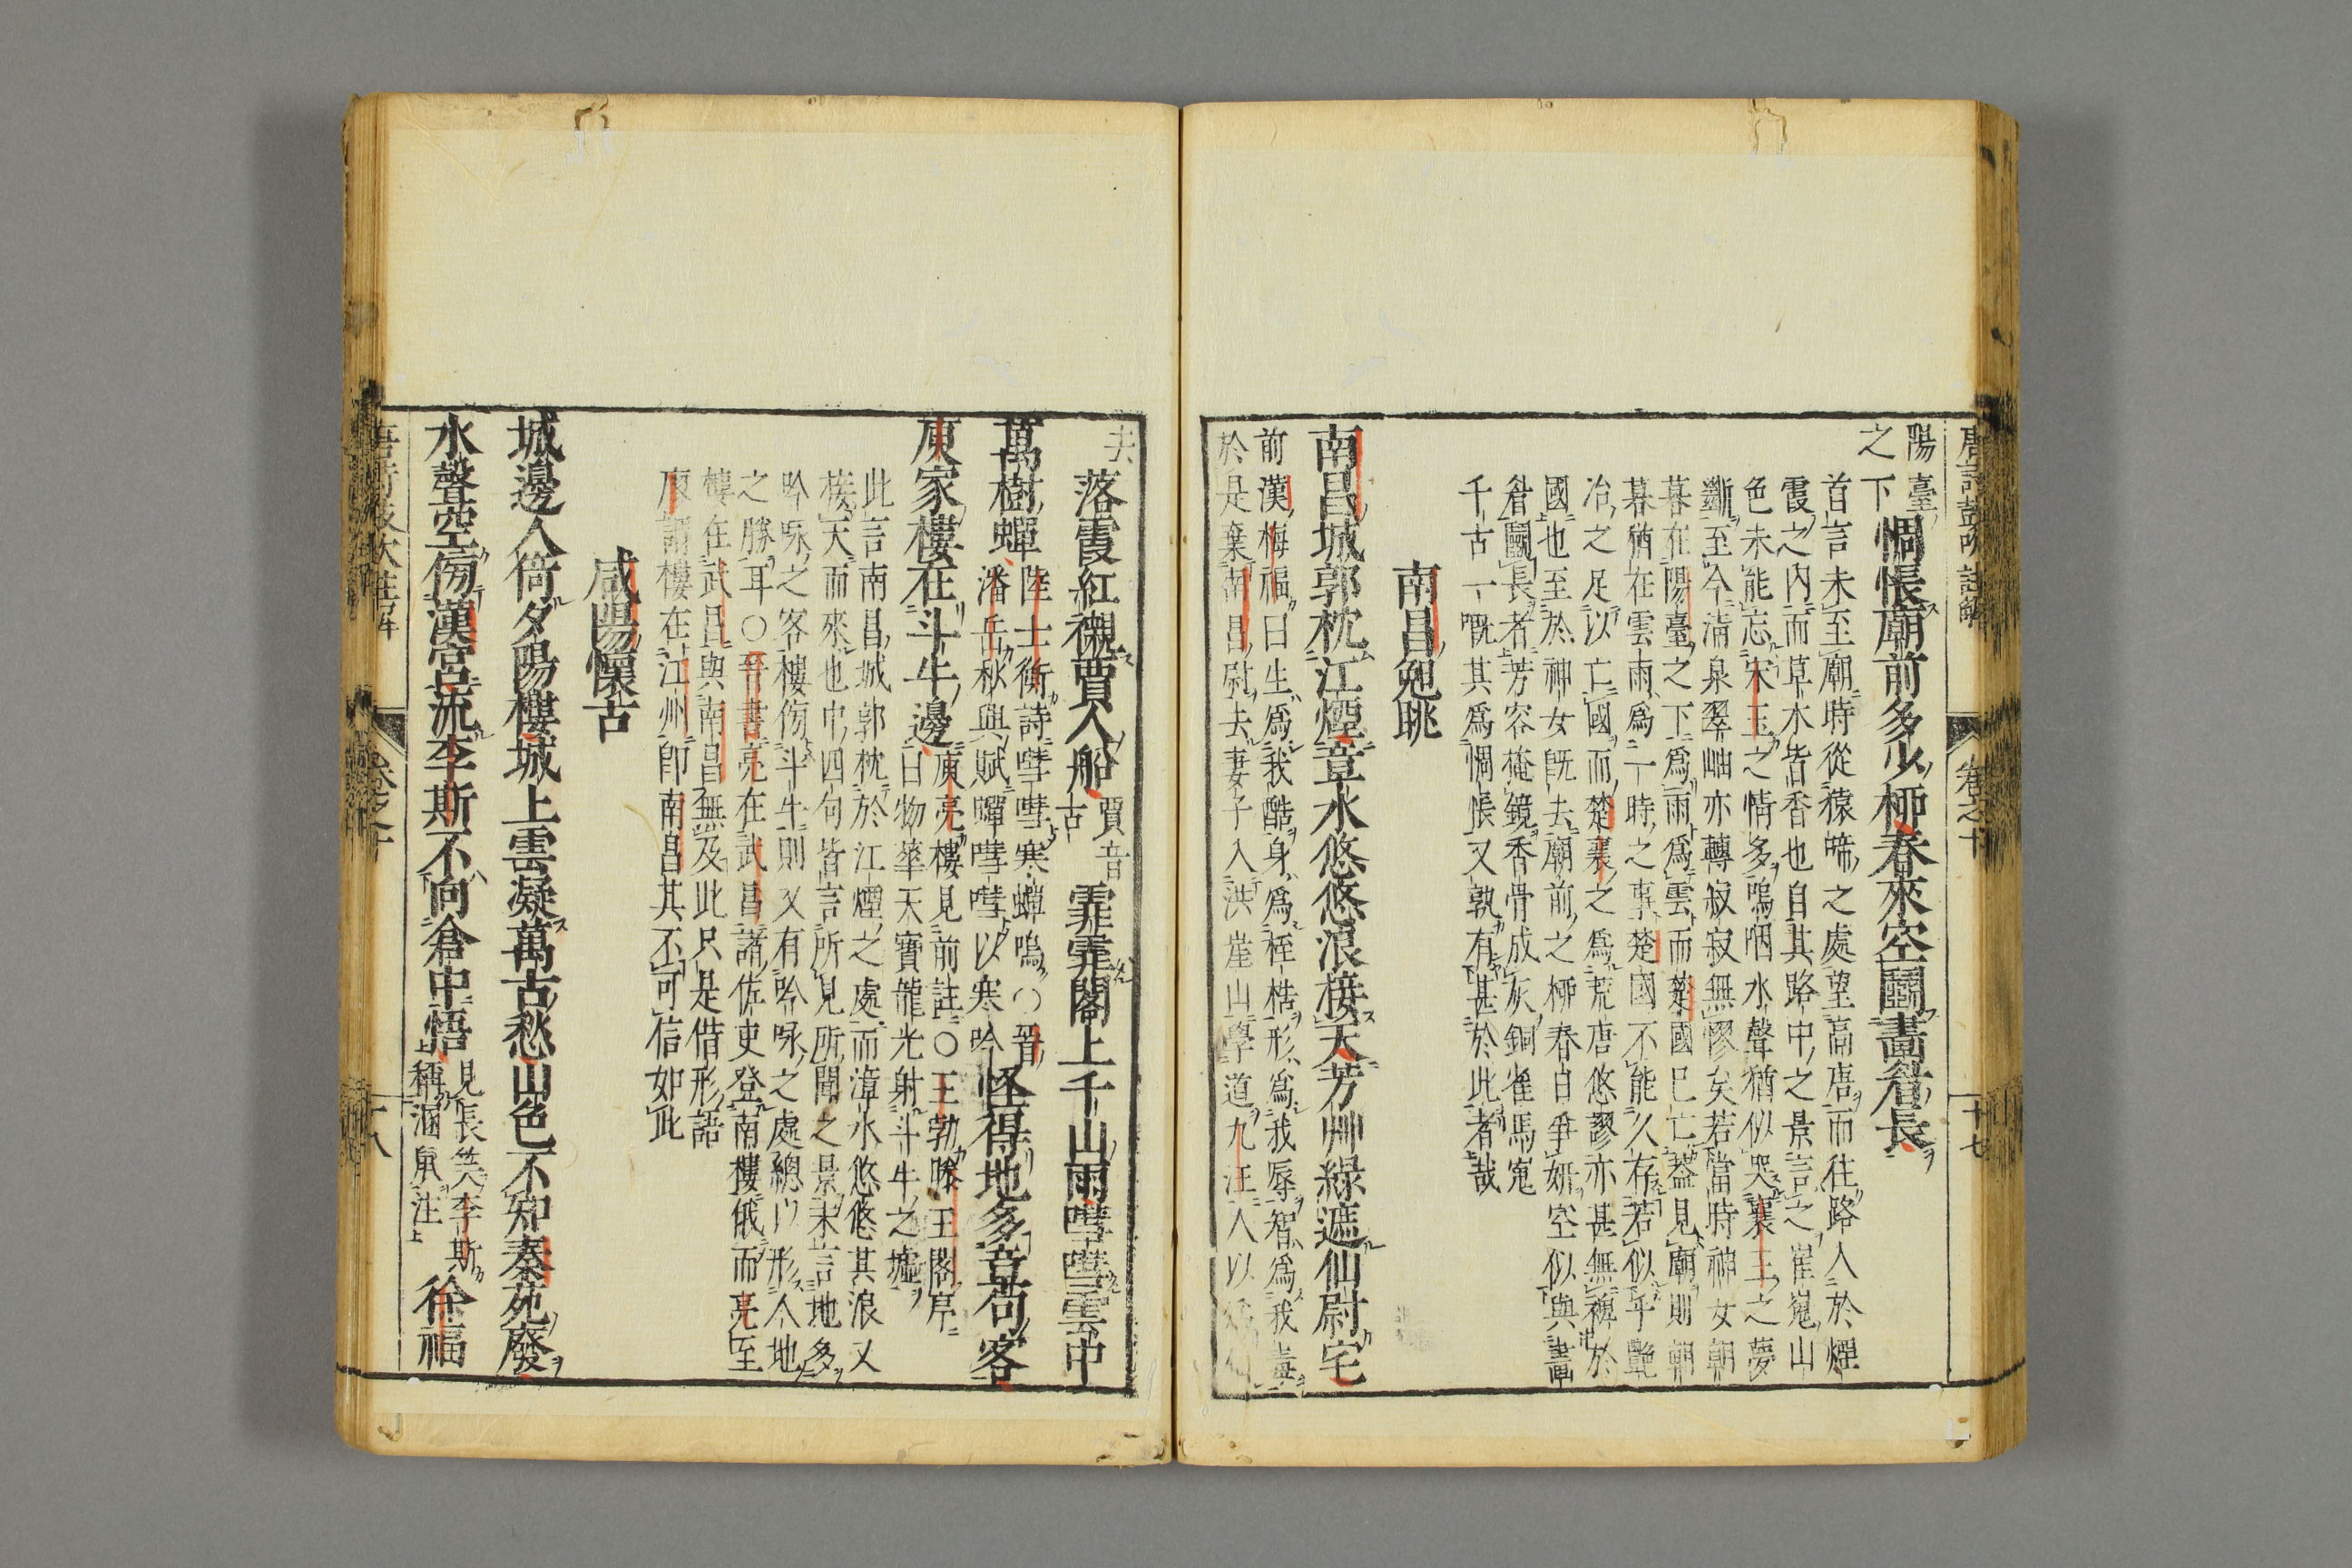 陽臺
之下
惆悵廟前多少柳春來空鬬畫眉長
首言未至廟時從猿啼之處望高唐而往路入於煙
霞之内而草木皆香也自其路中之景言之崔嵬山
色未能忘宋玉之情多嗚咽水聲猶似哭襄王之夢
斷至今淸泉翠岫亦轉寂寂無憀矣若當時神女朝
暮在陽臺之下爲雨爲雲而楚國已亡葢見廟則朝
暮猶在雲雨爲一時之事楚國不能久存若似乎艷
冶之足以亡國而楚襄之爲荒唐悠謬亦甚無裨於
國也至於神女旣去廟前之柳春日爭姸空似與畫
眉鬬長者芳容掩鏡香骨成灰銅雀馬嵬
千古一嘅其爲惆悵又孰有甚於此者哉
南昌晩眺
南昌城郭枕江煙章水悠悠浪接天芳艸綠遮仙尉宅
前漢梅福曰生爲我酷身爲桎梏形爲我辱智爲我毒
於是棄南昌尉去妻子入洪崖山學道九江人以爲仙
去
落霞紅襯賈人船
賈音
古
霏霏閣上千山雨嘒嘒雲中
萬樹蟬
陸士衡詩嘒嘒寒蟬鳴○晉
潘岳秋興賦蟬嘒嘒以寒吟
怪得地多章苟客
庾家樓在斗牛邊
庾亮樓見前註○王勃滕王閣序
曰物華天寶龍光射斗牛之墟
此言南昌城郭枕於江煙之處而漳水悠悠其浪又
接天而來也中四句皆言所見所聞之景末言地多
吟咏之客樓傍斗牛則又有吟咏之處總以形人地
之勝耳○晉書亮在武昌諸佐吏登南樓俄而亮至
樓在武昌與南昌無及此只是借形語
庾謂樓在江州卽南昌其不可信如此
咸陽懷古
城邊人倚夕陽樓城上雲凝萬古愁山色不知秦苑廢
水聲空傍漢宮流李斯不向倉中悟
見長笑李斯
稱溷鼠注
徐福
卷之十
十七
卷之十
十八